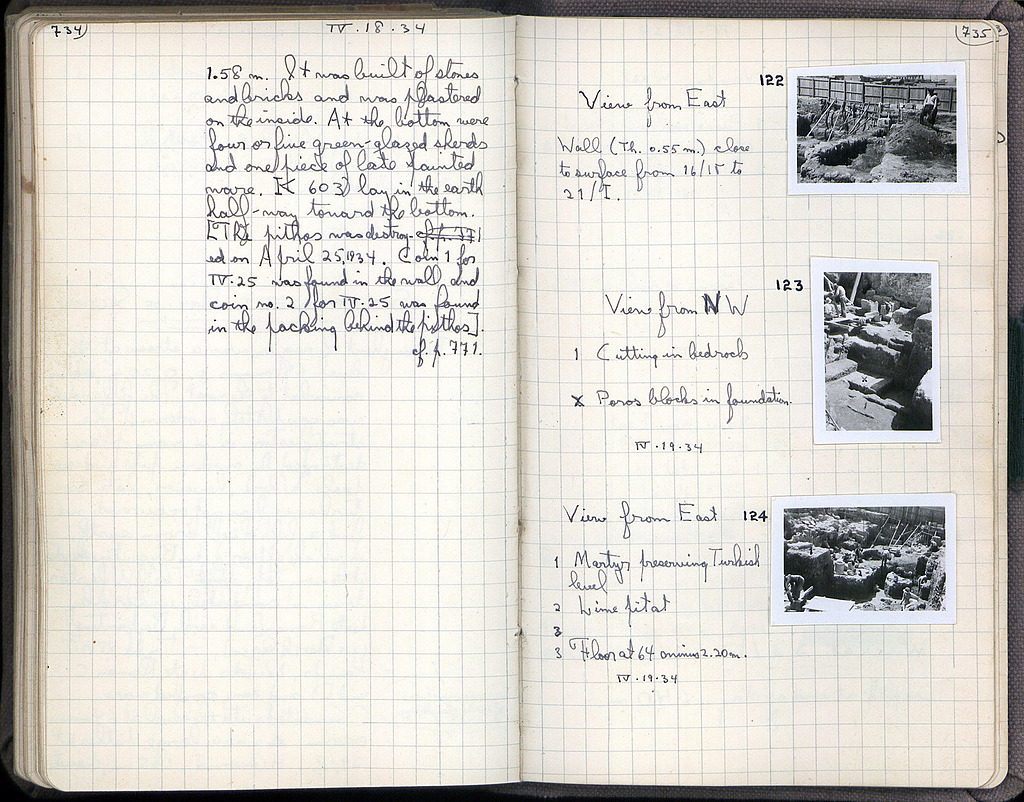 734
IV.18.34
1.58 m. It was built of stones
and bricks and was plastered
on the inside. At the bottom were
four or five green-glazed sherds
and one piece of late painted
ware. [K 603] lay in the earth
half-way toward the bottom.
[The pithos was destroy- cf. p. 771
ed on April 25, 1934. Coin 1 for
IV.25 was found in the wall and
coin no. 2 for IV.25 was found
in the packing behind the pithos].
cf. p. 771.
735
122
View from East
Wall (Th. 0.55 m.) close
to surface from 16/IE to
21/I.
123
View from NW
1 Cutting in bedrock
X Poros blocks in foundation.
IV.19.34
View from East 124
1 Martyr preserving Turkish
level
2 Lime pit at
3
3 Floor at 64 minus 2.20 m.
IV.19.34